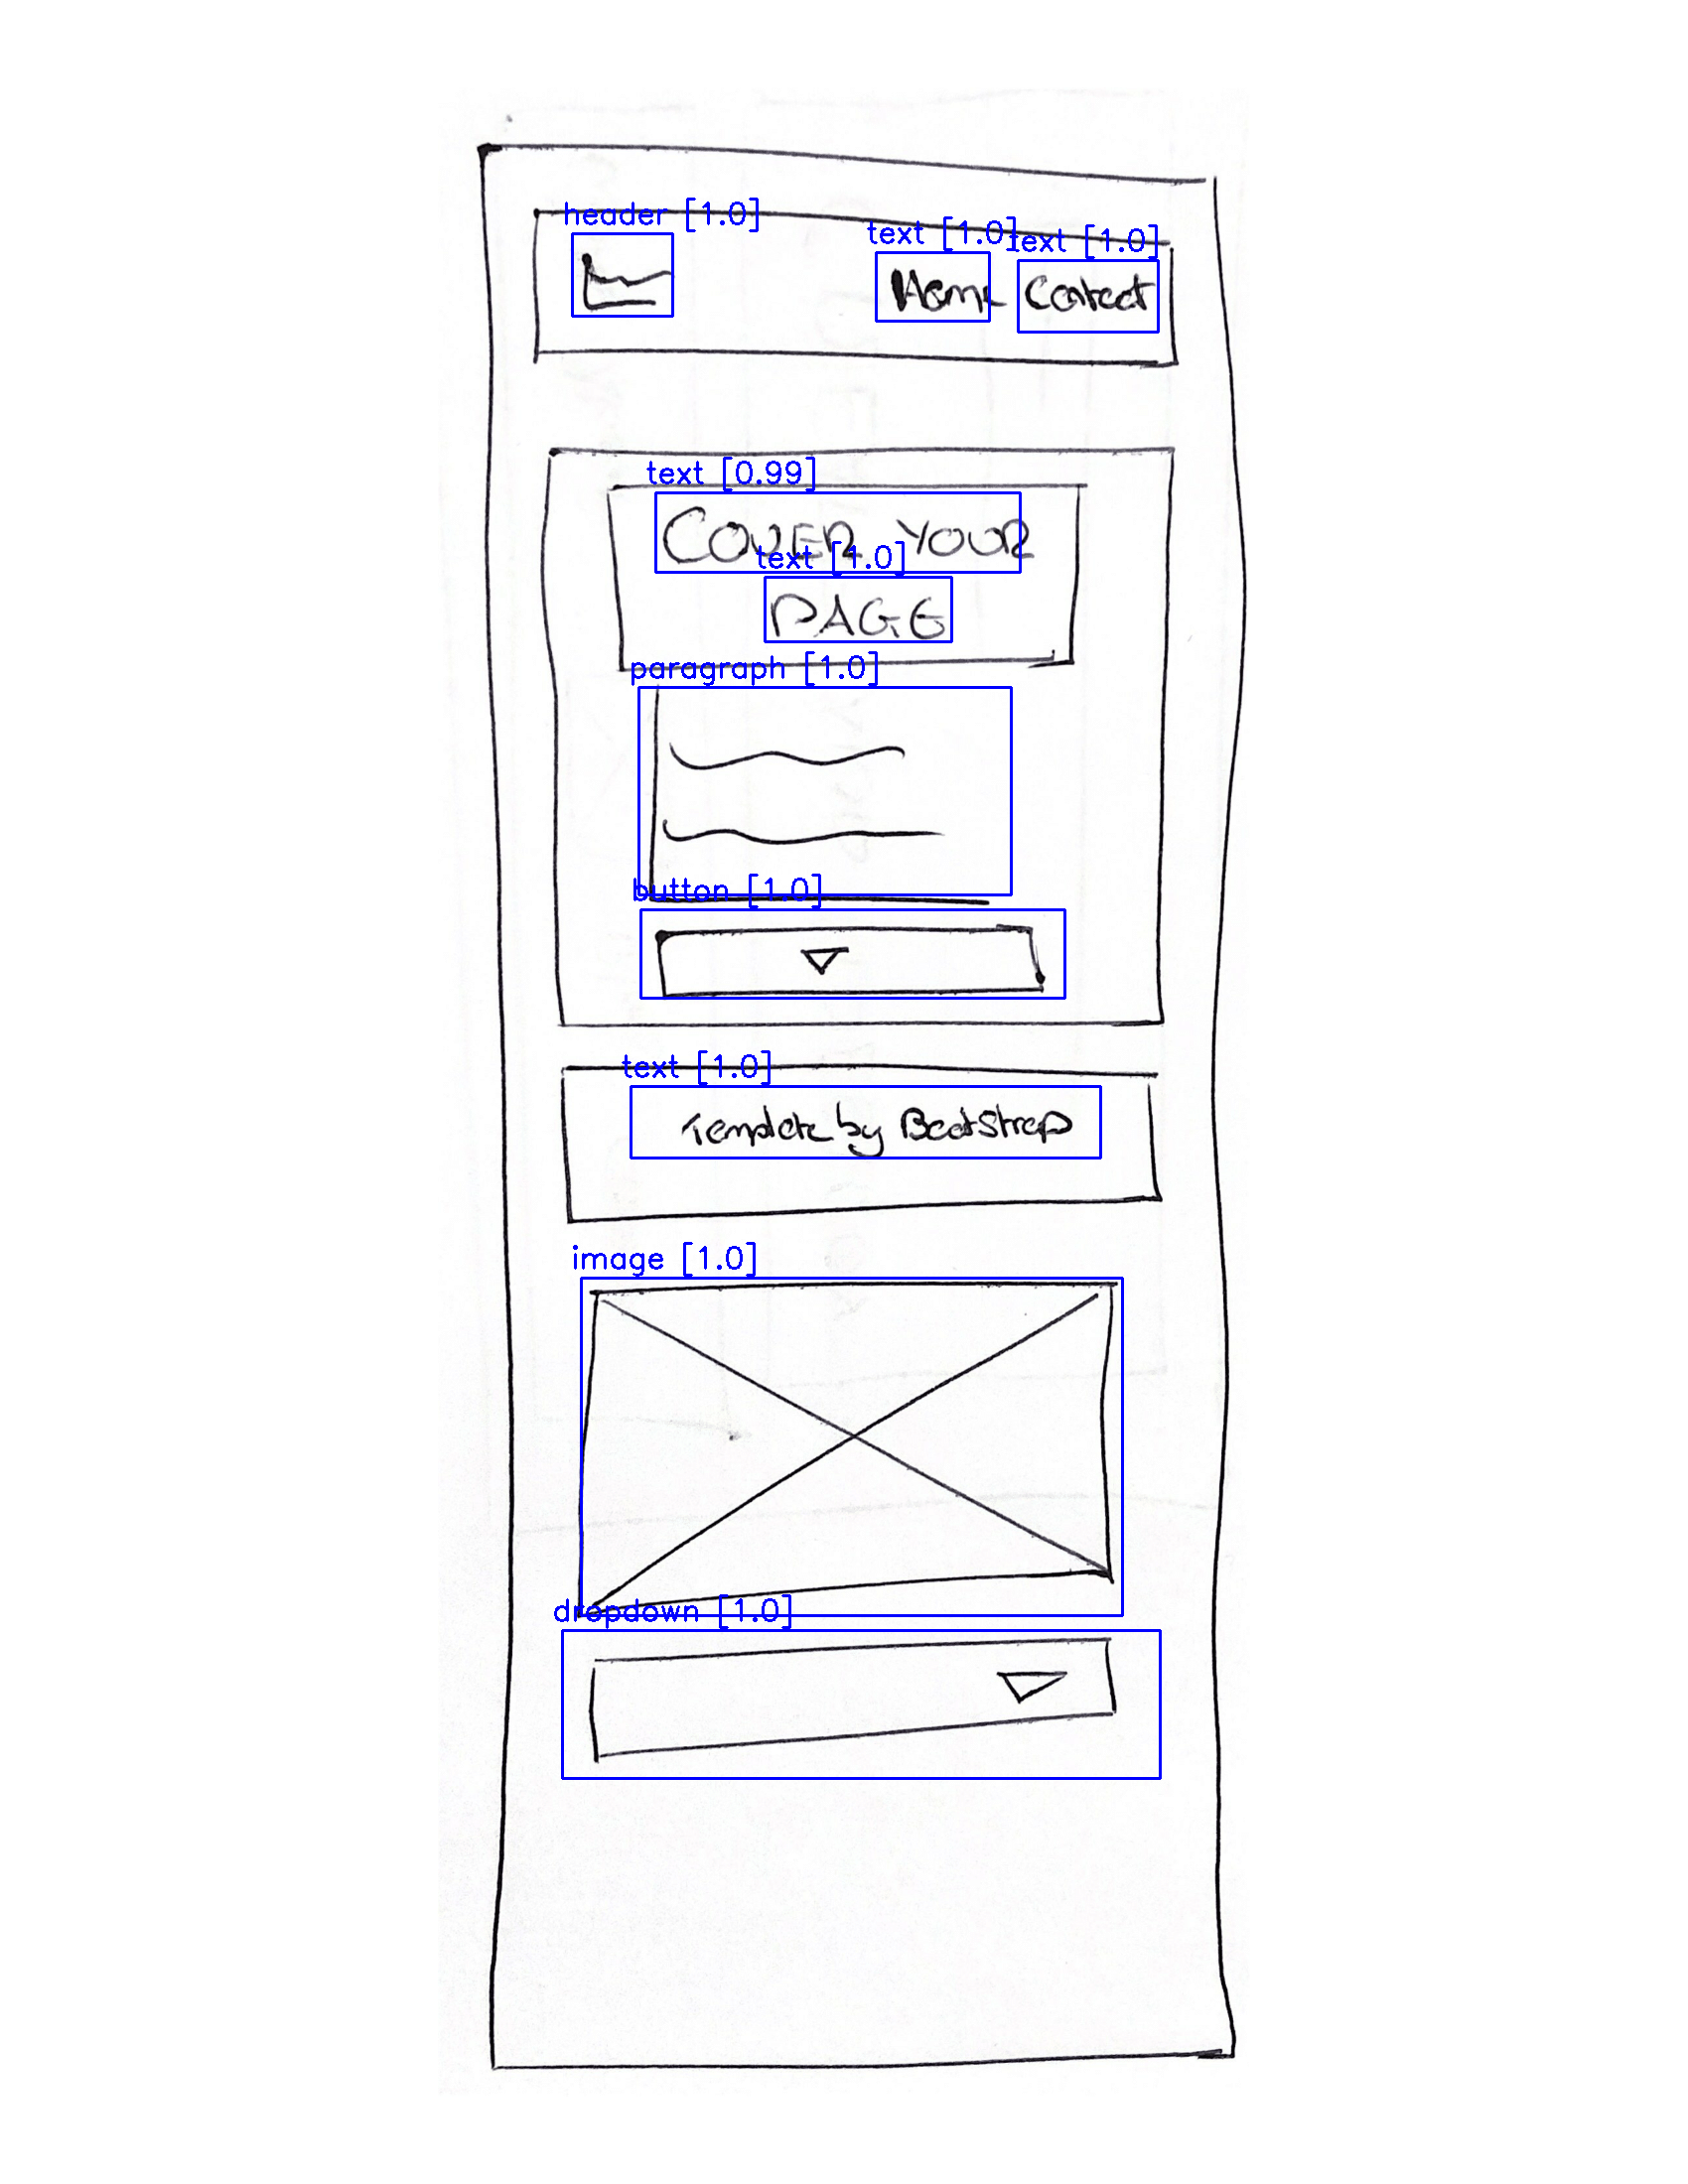 header [1.0]
text [1.0]
text [1.0]
Home Contact
text [0.99]
COVER YOUR
text [1.0]
PAGE
paragraph [1.0]
button [1.0]
text [1.0]
Template by BootStrap
image [1.0]
dropdown [1.0]